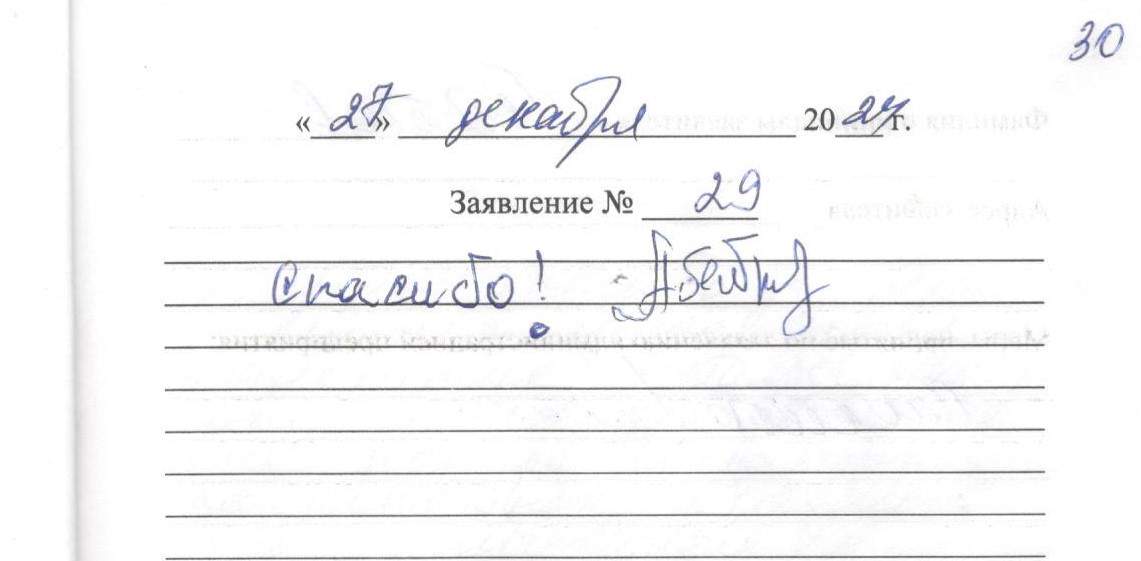 30
«27» декабря 2024г.
Заявление № 29
Спасибо!